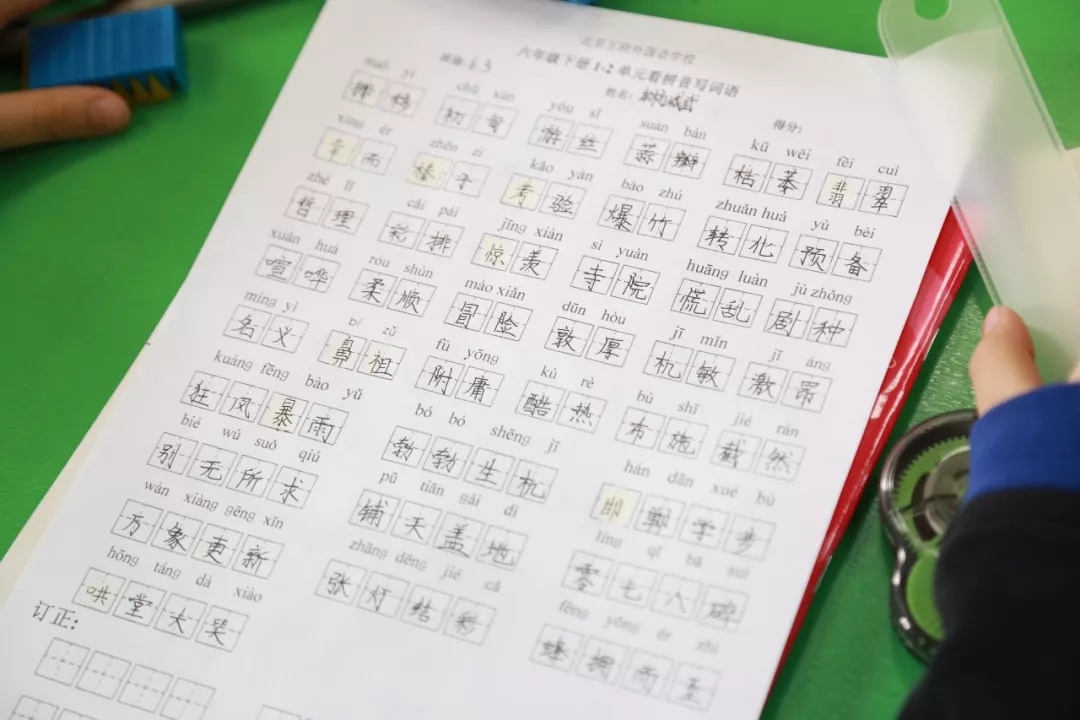 北京王府外国语学校
六年级下册1-2单元看拼音写词语
班级: 6.3 姓名: 得分:
chū xún yóu sī suàn bàn kū wěi fěi cuì
初旬 游丝 蒜瓣 枯萎 翡翠
xìng ér zhēn zi kǎo yàn bào zhú zhuǎn huà yù bèi
幸而 榛子 考验 爆竹 转化 预备
zhé lǐ cǎi pái jīng xiàn sì yuàn huāng luàn jù zhǒng
哲理 彩排 惊羡 寺院 慌乱 剧种
xuān huá róu shùn mào xiǎn dūn hòu jī mǐn jī áng
喧哗 柔顺 冒险 敦厚 杭敏 激昂
míng yì bí zǔ fù yōng kù rè bù shī jié rán
名义 鼻祖 附庸 酷热 布施 截然
kuáng fēng bào yǔ bó bó shēng jī hán dān xué bù
狂风暴雨 勃勃生杭 邯郸学步
bié wú suǒ qiú pū tiān gài dì líng qī bā suì
别无所求 铺天盖地 零七八碑
wàn xiàng gēng xīn zhāng dēng jié cǎi fēng yōng ér zhì
方象更新 张灯结彩 蜂拥而至
hōng táng dà xiào
哄堂大笑
订正: